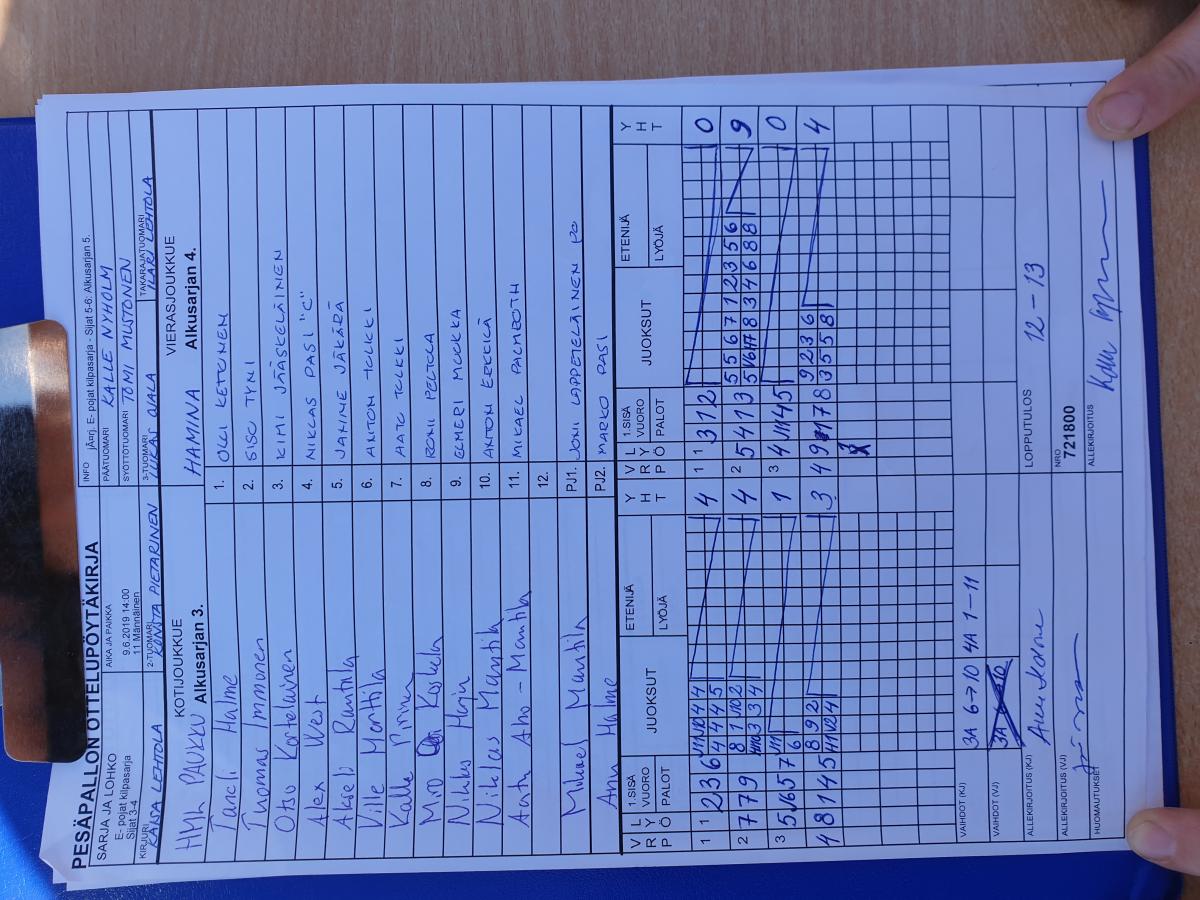 PESÄPALLON OTTELUPÖYTÄKIRJA
SARJA JA LOHKO
E- pojat kilpasarja
Sijat 3-4
AIKA JA PAIKKA
9.6.2019 14:00
11 Männäinen
INFO jÄ¤rj. E- pojat kilpasarja - Sijat 5-6: Alkusarjan 5.
PÄÄTUOMARI KALLE NYHOLM
SYÖTTÖTUOMARI TOMI MUSTONEN
KIRJURI KAISA LEHTOLA
2-TUOMARI KONSTA PIETARINEN
3-TUOMARI LUKAS OJALA
TAKARAJATUOMARI ILARI LEHTOLA
KOTIJOUKKUE
HML PAUKKU Alkusarjan 3.
VIERASJOUKKUE
HAMINA Alkusarjan 4.
Taneli Halme 1. OLLI KETONEN
Tuomas Immonen 2. SISU TYNI
Otso Kostelainen 3. KIMI JÄÄSKELÄINEN
Alex West 4. NIKLAS PASI "C"
Akseli Rantila 5. JANNE JÄKÄRÄ
Ville Monttila 6. ANTON TULKKI
Kalle Pirinen 7. AATU TULKKI
Miro Koskela 8. RONI PELTOLA
Nikke Horin 9. ELMERI MUUKKA
Niklas Mantila 10. ANTON ERKKILÄ
Aatu Aho-Mantila 11. MIKAEL PALMROTH
12.
Mikael Mantila PJ1. JONI LAPPETELÄINEN PO
Anu Halme PJ2. MARKO PASI
V R Y L P Ö 1.SISÄ VUORO PALOT JUOKSUT ETENIJÄ LYÖJÄ Y H T
V R Y L P Ö 1.SISÄ VUORO PALOT JUOKSUT ETENIJÄ LYÖJÄ Y H T
1 1 2 3 6 V11 V10 4 4 4 1 1 3 1 12 0
4 4 4 5
2 7 7 9 8 1 10 2 4 2 5 4 1 3 5 5 6 7 1 2 3 5 6 9
3 3 4 5 V6 V7 8 3 4 6 8 8
3 5 V6 5 7 V11 1 3 4 V11 4 5 0
6
4 8 1 4 5 8 9 2 3 4 9 11 7 8 9 2 3 6 4
V11 V2 4 3 5 5 8
VAIHDOT (KJ) 3A 6→10 4A 1-11
VAIHDOT (VJ)
ALLEKIRJOITUS (KJ) Anu Halme
LOPPUTULOS 12-13
ALLEKIRJOITUS (VJ)
NRO
721800
HUOMAUTUKSET
ALLEKIRJOITUS